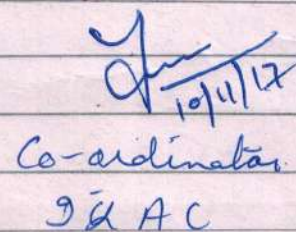 10/11/17
Co-ordinator
IQAC